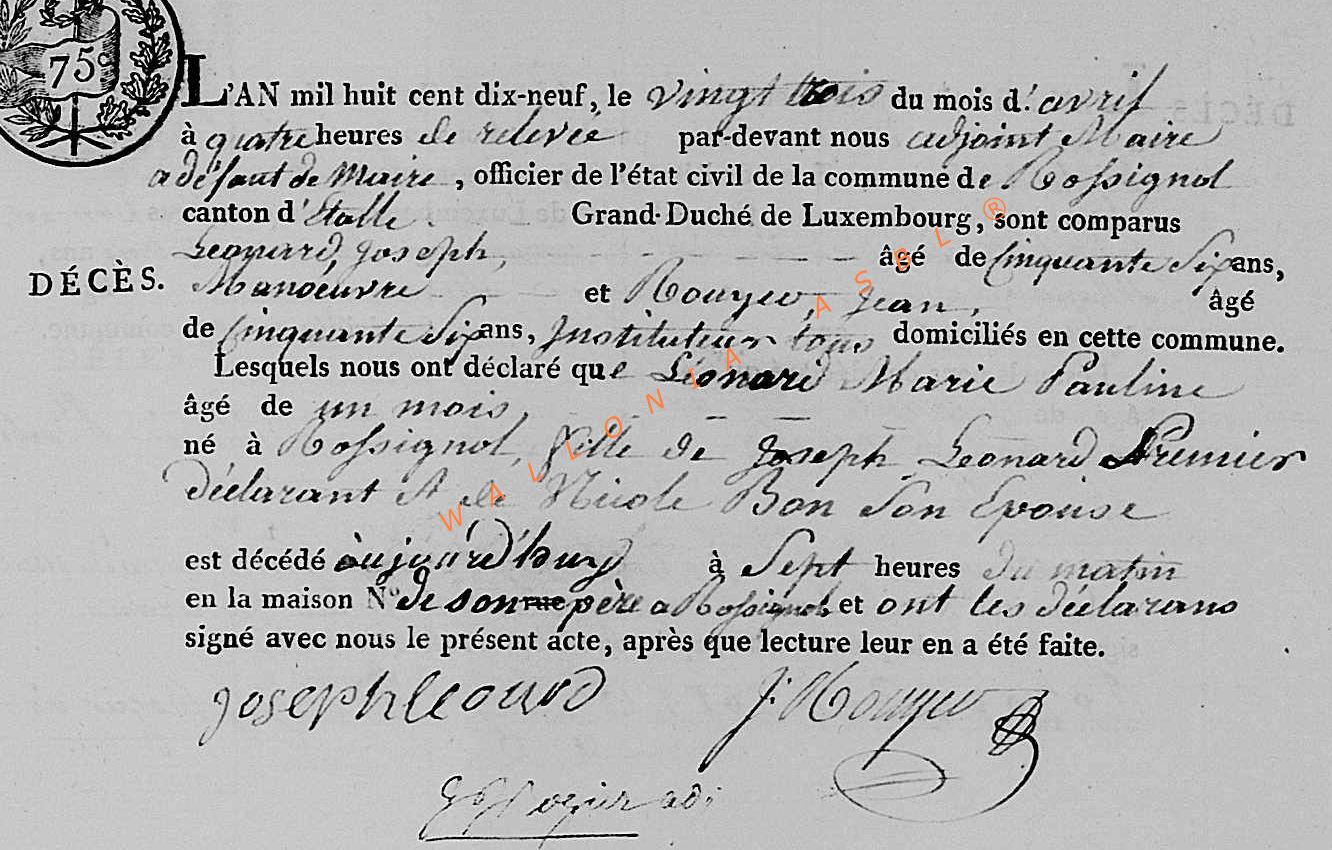 75c
L'AN mil huit cent dix-neuf, le vingt trois du mois d'avril
à quatre heures de relevée par-devant nous adjoint Maire
a défaut de Maire, officier de l'état civil de la commune de Rossignol
canton d'Etalle. Grand-Duché de Luxembourg, sont comparus
Leonard, Joseph, âgé de Cinquante Six ans,
DÉCÈS.
Manoeuvre et Rouyer, Jean, âgé
de Cinquante Six ans, Instituteur tous domiciliés en cette commune.
Lesquels nous ont déclaré que Léonard Marie Pauline
âgé de un mois,
né à Rossignol, fille de Joseph Leonard Premier
déclarant et de Nicole Bon Son Epouse
est décédé aujourd'huy à Sept heures du matin
en la maison N° de son rue père a Rossignol, et ont les déclarans
signé avec nous le présent acte, après que lecture leur en a été faite.
joseph leonard J: Rouyer
adj
WALLONIA ASBL ®